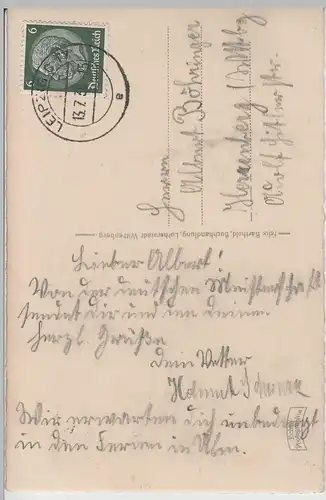 6 6
Deutsches Reich
LEIPZIG
13.7.3
a
Herrn
Albert Böhringer
Herrenberg
Adolf Hitler Str.
Felix Barthold, Buchhandlung, Lutherstadt Wittenberg
Lieber Albert!
Von der deutschen Meisterschaft
sendet Dir und den Deinen
herzl. Grüße
Dein Vetter
Helmut
Wir erwarten Dich unbedingt
in den Ferien in Ulm.